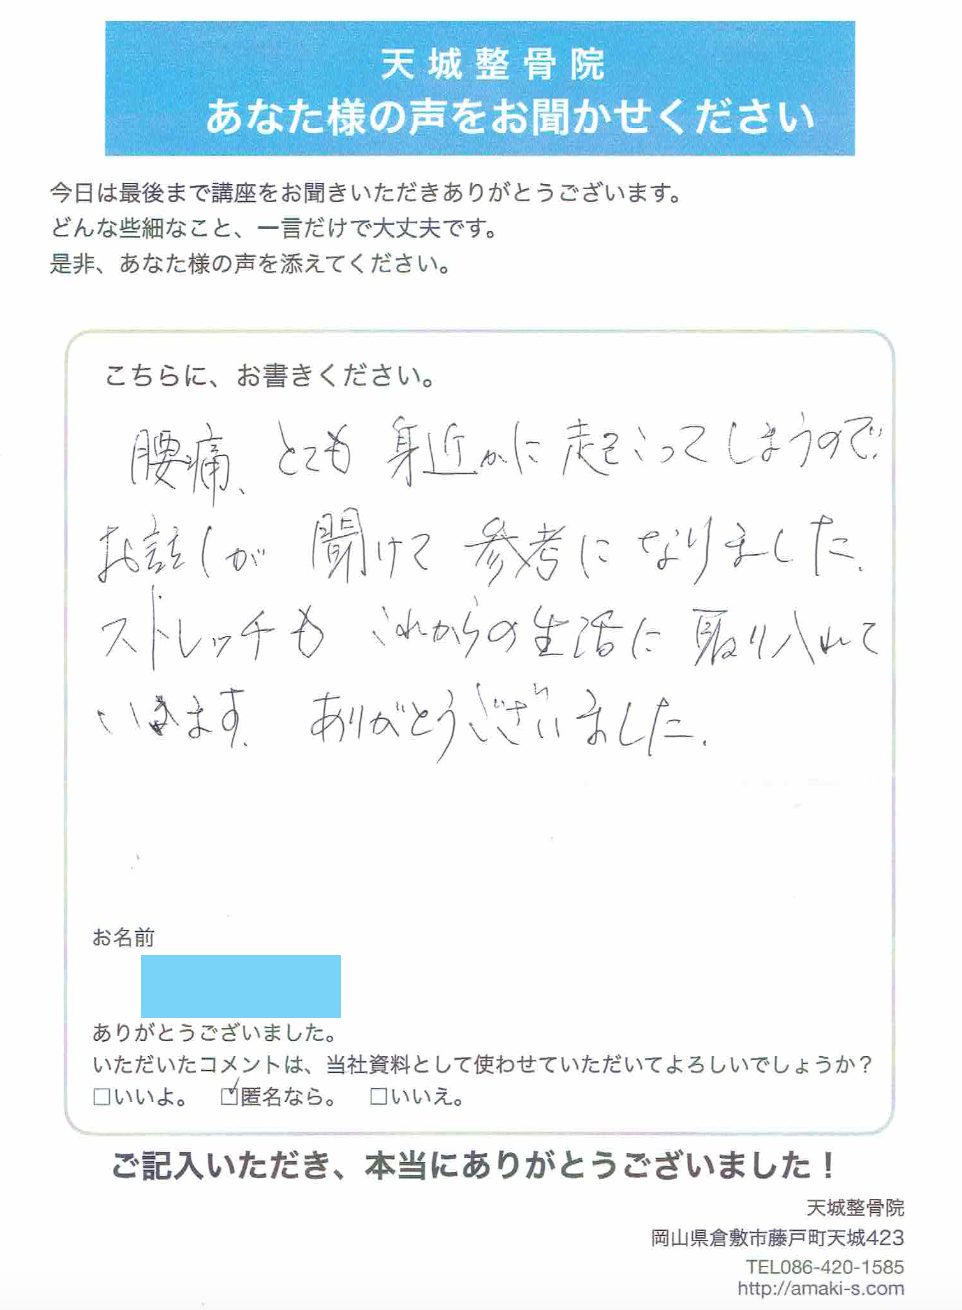 天城整骨院
あなた様の声をお聞かせください
今日は最後まで講座をお聞きいただきありがとうございます。
どんな些細なこと、一言だけで大丈夫です。
是非、あなた様の声を添えてください。
こちらに、お書きください。
腰痛、とても身近かに起こってしまうので
お話しが聞けて参考になりました。
ストレッチもこれからの生活に取り入れて
いきます。ありがとうございました。
お名前
ありがとうございました。
いただいたコメントは、当社資料として使わせていただいてよろしいでしょうか？
□いいよ。 ☑匿名なら。 □いいえ。
ご記入いただき、本当にありがとうございました！
天城整骨院
岡山県倉敷市藤戸町天城423
TEL086-420-1585
http://amaki-s.com